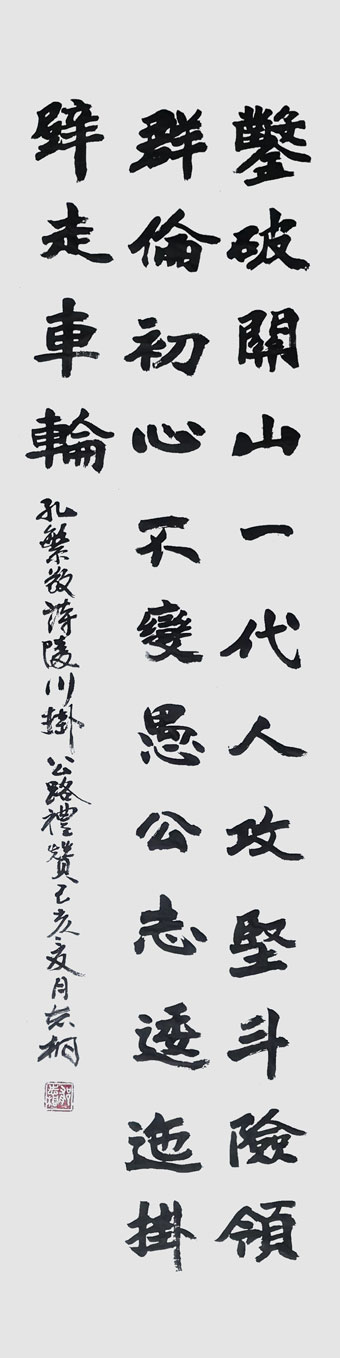 鑿破關山一代人攻堅斗險領
群倫初心不變愚公志逶迤掛
壁走車輪
孔繁敬詩陵川掛公路禮贊己亥夏月志桐